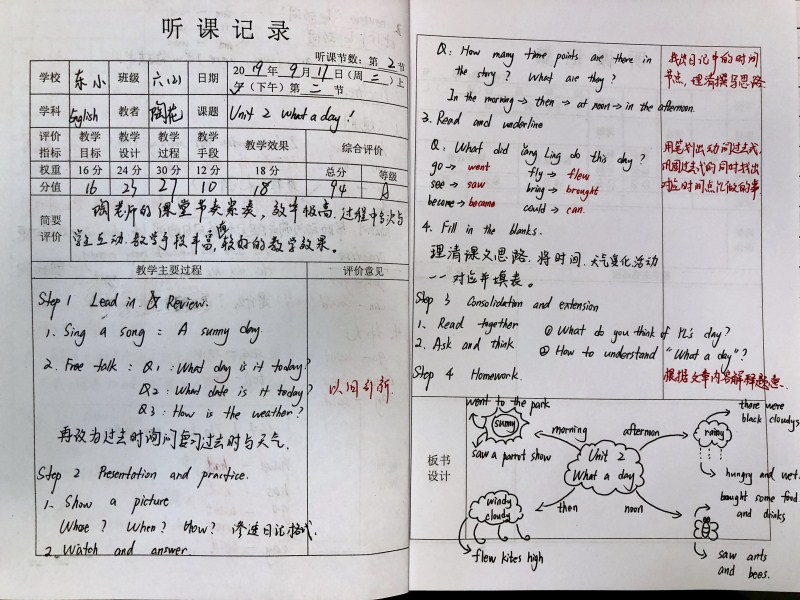 听课记录
听课节数：第 2 节
学校 东小 班级 六(2) 日期 2019年9月11日（周三）上
午（下午）第二节
学科 English 教者 陶花 课题 Unit 2 What a day!
评价指标 教学目标 教学设计 教学过程 教学手段 教学效果 综合评价
权重 16分 24分 30分 12分 18分 总分 等级
分值 16 23 27 10 18 94 A
简要评价
陶老师的课堂节奏紧凑，效率极高。过程中多次与
学生互动，教学手段丰富，较好的教学效果。
教学主要过程 评价意见
Step 1 Lead in & Review.
1. Sing a song: A sunny day.
2. Free talk: Q1: What day is it today?
Q2: What date is it today?
Q3: How is the weather?
以旧引新.
再改为过去时询问复习过去时与天气.
Step 2 Presentation and practice.
1. Show a picture
Whoe? When? How? 渗透日记格式.
2. Watch and answer.
Q: How many time points are there in
the story? What are they?
In the morning → then → at noon → in the afternoon.
找出日记中的时间
节点，理清撰写思路
3. Read and underline
Q: What did Yang Ling do this day?
go → went fly → flew
see → saw bring → brought
become → became could → can.
用笔划出动词过去式，
巩固过去式的同时找出
对应时间点所做的事
4. Fill in the blanks.
理清课文思路，将时间、天气变化活动
一一对应并填表。
Step 3 Consolidation and extension
1. Read together ① What do you think of YL's day?
2. Ask and think ② How to understand "What a day"?
Step 4 Homework.
根据文章内容解释题意.
板书设计
went to the park
sunny
saw a parrot show
morning
afternoon
there were
black cloudys
rainy
hungry and wet.
Unit 2
What a day
windy
cloudy
then
flew kites high
noon
bought some food
and drinks
saw ants
and bees.